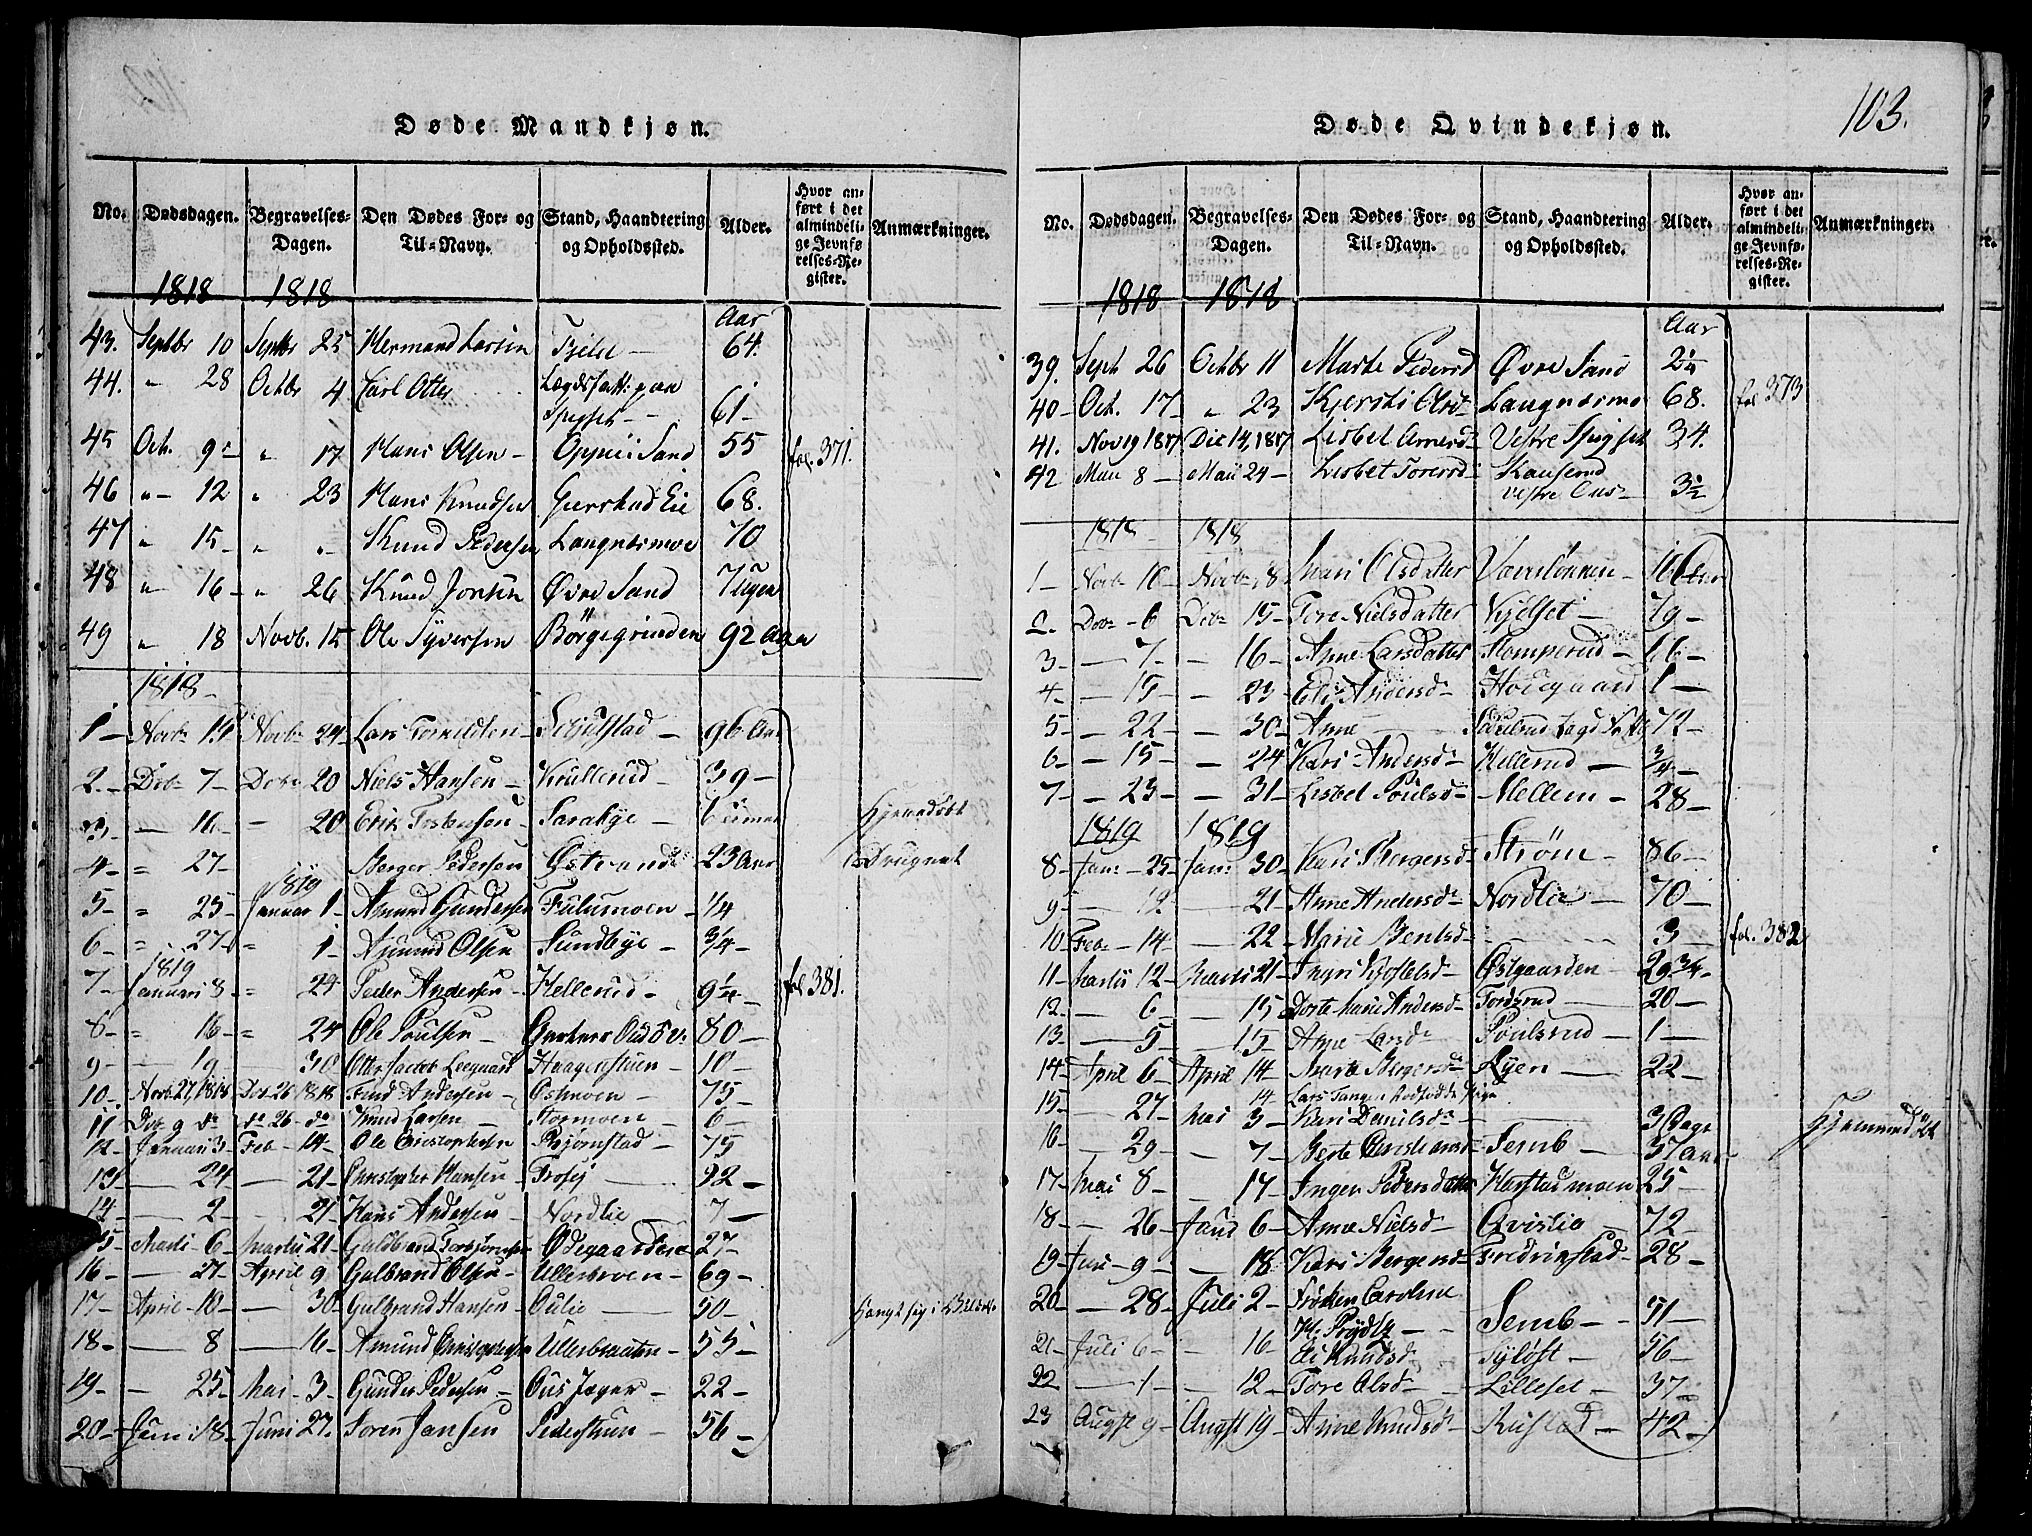 103.
Døde Mandkjøn.
No. Dødsdagen. Begravelses-Dagen. Den Dødes For- og Til-Navn. Stand, Haandtering og Opholdssted. Alder. Hvor anført i det almindelige Jevnførelses-Register. Anmærkninger.
1818 1818
Aar
43. Septbr 10 Septbr 25 Hermand Larsen Fjeld — 64.
44. " 28 Octbr 4 Carl Otter Lægdsfatt: paa
61 —
45 Oct. 9 " 17 Hans Olsen — Sand 55 fol. 371.
46 " 12 " 23 Hans Knudsen Gierstad Eie 68.
47 " 15 — " " Knud Pedersen Langnæsmoe 70
48 " 16 — " 26 Knud Joensen Øvre Sand 7 Uger
49 " 18 Novb. 15 Ole Syversen Børgegrinden 92 Aar
1818 —
1 — Novb 14 Novb 24 Lars — Schjulstad — 96 Aar
2. — Deb 7 — Deb 20 Niels Hansen — Krullerud — 39 —
3 — — 16 — — 20 Erik Torstensen — Sarabye — 6 Timer Hjemedøbt
4 — " 27 — Berger Pedersen Østvand 23 Aar Drugnet
1819
5 — " 25 — Januar 1 — Asmund Gundersen Fulumoen — 1/4
6 — " 27 — " 1 — Asmund Olsen Sundbye — 3/4 —
1819
7 — Januari 8 — " 24 Peder Andersen — Hellerud — 9 1/4 — fol 381.
8 — " 16 — " 24 Ole Poulsen — 80 —
9 — — 19 30 Otter Jacob Haagenstuen — 10 —
10 — Novb 27, 1818 Deb 26 1818 Find Andersen — Oshmoen — 75 —
11 Deb 9 do do 26 do Knud Larsen — Kormoen — 6 —
12 — Januari 3 — Feb — 14 — Ole Christophersen Bjørnstad — 75
13 — — 24 — 21 — Christopher Hansen — Trosej — 22 —
14 — — 2 — — 21 — Hans Andersen — Nordlie — 7 —
15 — Marti 6 — Martii 21 — Guldbrand Torbjørnsen Ødegaarden 27 —
16 — — 27 — April 9 Gulbrand Olsen — Ullerbroen — 69 —
17 — April 10 — — 30 Gulbrand Hansen — Oulie — 50 — Hængt sig i
18 — — 8 — 16 Amund Christophersen Ullerbraaten — 55 —
19 — — 25 — Mai — 3 — Gunder Pedersen — Ous Jæger — 22 —
20 — Juni 18 — Juni 27. Søren Jansen Pederstuen — 56 —
Døde Qvindekjøn.
No. Dødsdagen. Begravelses-Dagen. Den Dødes For- og Til-Navn. Stand, Haandtering og Opholdssted. Alder. Hvor anført i det almindelige Jevnførelses-Register. Anmærkninger.
1818 1818
Aar
39. Sept 26 Octbr 11 Marte Pedersd Øvre Sand 2 1/4
40 — Oct. 17 — " 23 Kjersti Olsd — Langnæsmo 68. fol 373
41. Nov 19 1817 Dec 14, 1817 Lisbet Arnesd — Vestre 34.
42 Maii 8 — Maii 24 — Lisbet Toresd — Kauserud
vestre Ous — 3 1/2
1818 — 1818
1 — Novb 10 — Novb 8 Mari Olsdatter 16 Aar
2. Deb — 6 Deb 15 — Tore Nielsdatter Kjølset — 79 —
3 — — 7 — — 16 — Anne Larsdatter Stomperud — 16 —
4 — — 15 — — 23 — Eli Andersd — Hovegaard 1 —
5 — — 22 — — 30 — Anne — Poulsrud Lægd 72 —
6 — — 15 — — 24 Kari Andersd — Hellerud — 3/4 —
7 — — 23 — — 31 — Lisbet Poulsd — Mellem — 28 —
1819 1819
8 — Jan: — 25 — Jan: 30 — Kari Bergersd — Strøm — 86 —
9 — — 12 — 21 — Anne Andersd — Nordlie — 70 —
10 — Feb — 14 — — 22 — Marie Bentsd — 3 — fol. 382
11 — Martii 12 — Martii 21 — Ingri Østgaarden — 29 3/4 —
12 — — 6 — — 15 Dorte Marie Andersd — Fordsrud — 20 —
13 — — 5 — — 15 — Anne Larsd — Poulsrud — 1 —
14 — April 6 — April 14 — Marte Bergersd — Lyen — 22 —
14 — Lars Tangen Dødfødde Pige
15 — — 27 — Mai — 3 — Kari Danielsd — 3 Dage Hjemmedøbt
16 — — 29 — — 7 — Berte Christiansd — Semb — 37 Aar
17 — Mai 8 — — 17 — Inger Pedersdatter Harstadmoen 25 —
18 — — 26 — Juni 6 — Anne Nielsd — Qvislie — 72 —
19 — Juni — 9 — — 18 Kari Bergersd — Fredrikstad — 28 —
20 — — 28 — Juli 2 — Frøken Caroline
H. Prydtz — Semb — 51 —
21 — Juli 6 — — 16 — Eli Knudsd — Tyløft — 56 —
22 — 1 — — 12 — Tore Olsd — Lilleset — 37 —
23 Augst 9 — Augst 19 — Anne Knudsd — Rustad — 42 —